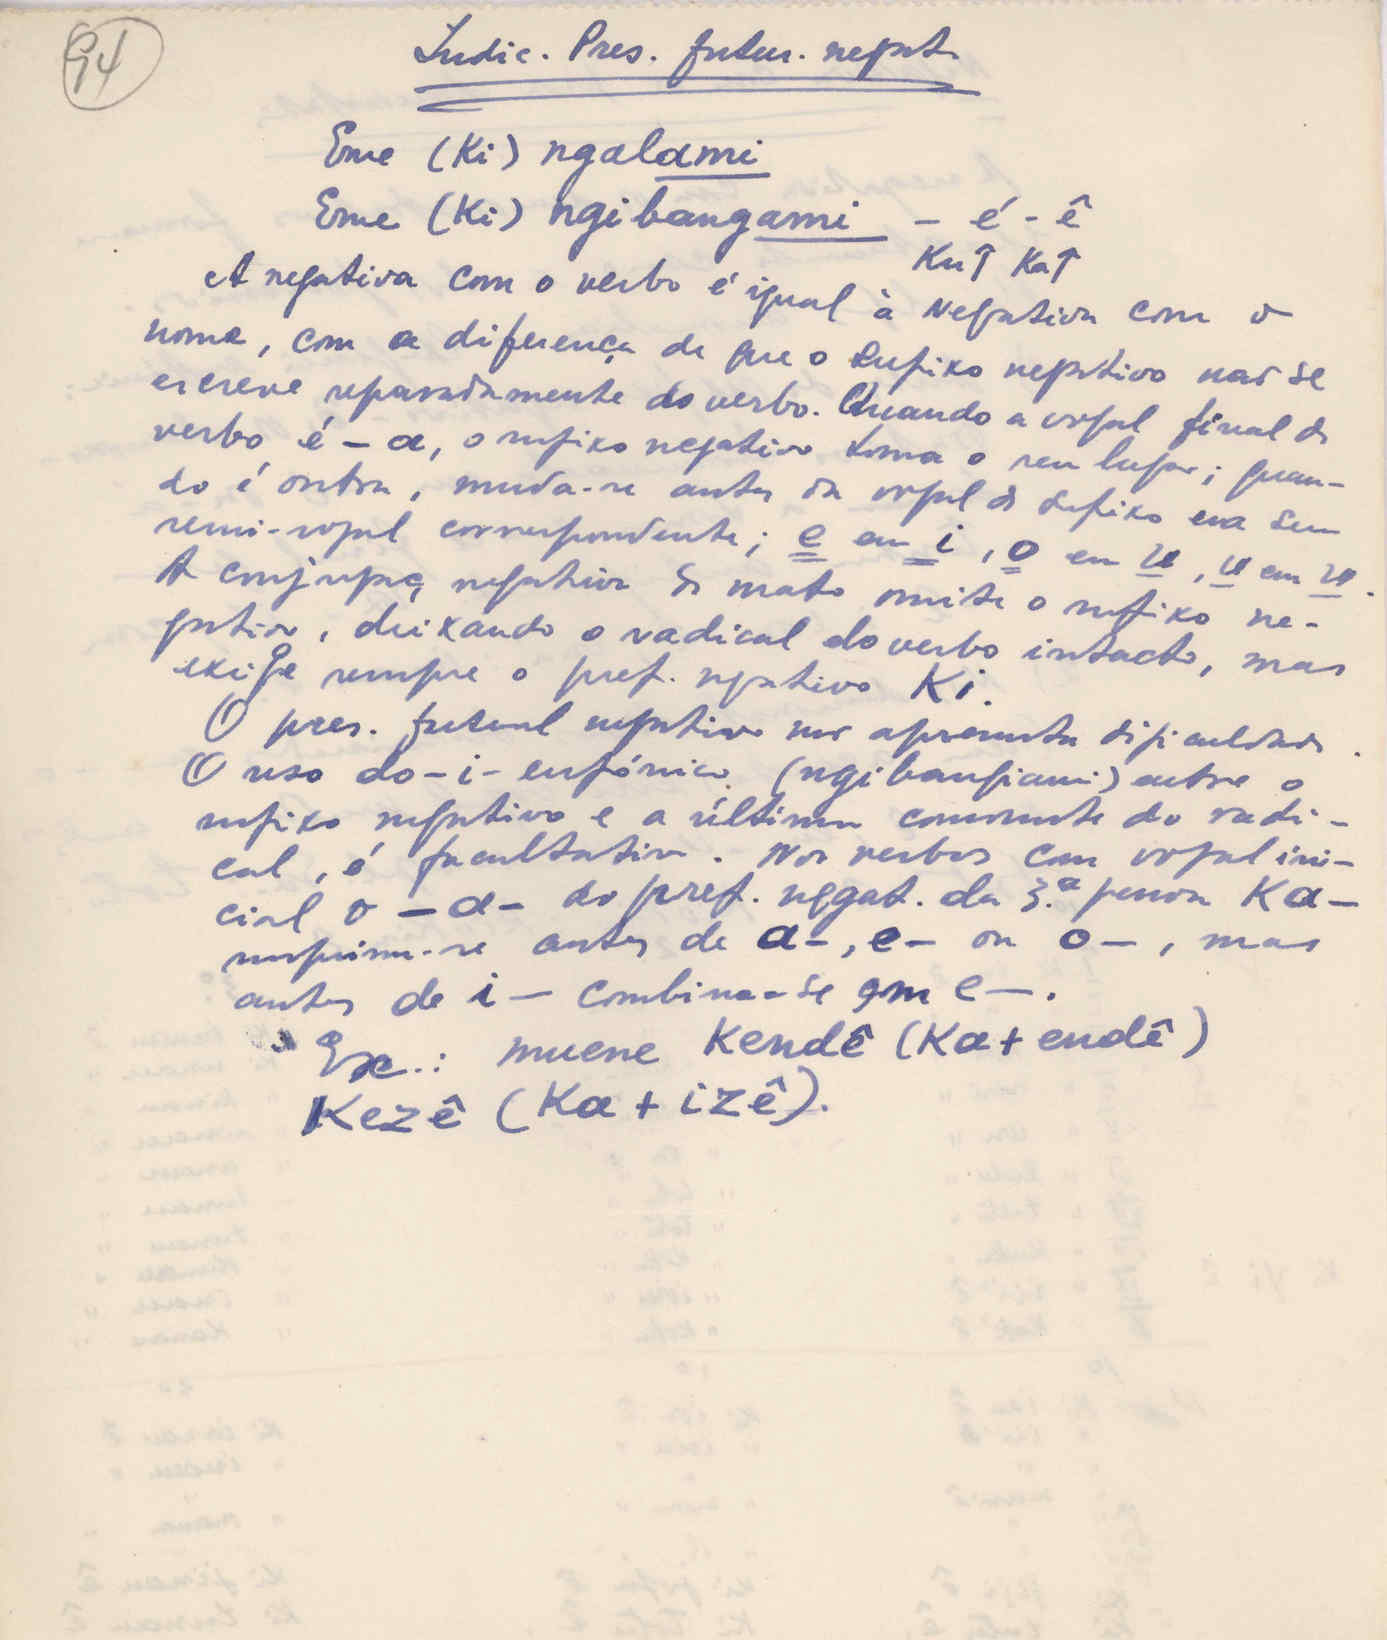 94
Indic. Pres. futur. negat.
Eme (Ki) ngalami
Eme (Ki) ngibangami - é - ê
Ku↑ Ka↑
A negativa com o verbo é igual à negativa com o
nome, com a diferença de que o sufixo negativo não se
escreve separadamente do verbo. Quando a vogal final do
verbo é - a, o sufixo negativo toma o seu lugar; quan-
do é outra, muda-se antes da vogal do sufixo em sua
semi-vogal correspondente; e em i, o em u, u em u.
A conjugaç. negativa do mato omite o sufixo ne-
gativo, deixando o radical do verbo intacto, mas
exige sempre o pref. negativo Ki.
O pres. futural negativo não apresenta dificuldades.
O uso do - i - eufónico (ngibangiami) entre o
sufixo negativo e a última consoante do radi-
cal, é facultativo. Nos verbos com vogal ini-
cial o - a - do pref. negat. da 3.ª pessoa Ka -
suprime-se antes de a -, e - ou o -, mas
antes de i - combina-se em e -.
Ex.: muene Kendê (Ka + endê)
Kezê (Ka + izê).